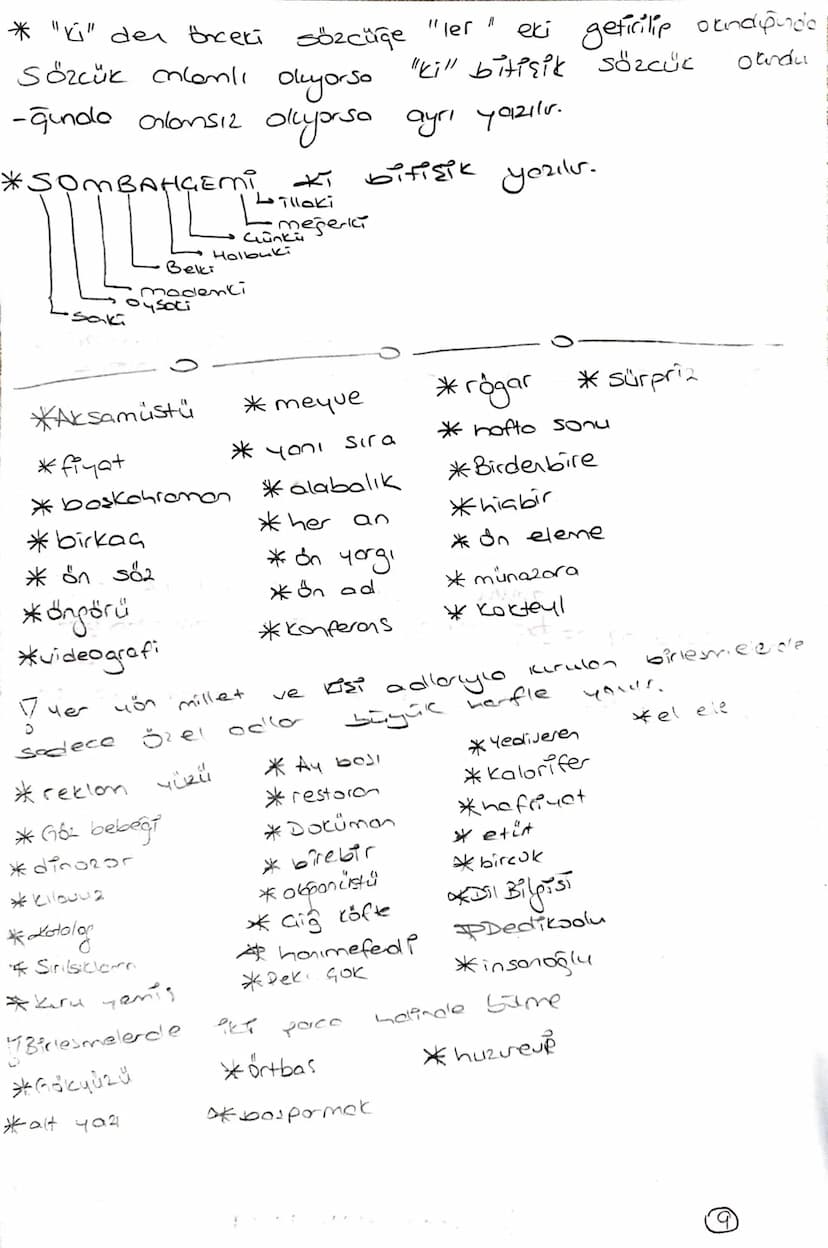 * "ki" den önceki sözcüğe "ler" eki getirilip okundığında
Sözcük anlamlı oluyorsa "ki" bitişik sözcük okundu
-ğunda anlamsız oluyorsa ayrı yazılır.
*SOMBAHÇEMİ ki bitişik yazılır.
illaki
meğerki
Çünkü
Halbuki
Belki
mademki
oysaki
Sanki
*Akşamüstü * meyve * rögar * sürpriz
*fiyat * yanı sıra * hafta sonu
* başkahraman * alabalık *Birdenbire
*birkaç *her an *hiçbir
* ön söz * ön yargı * ön eleme
*öngörü * ön ad * münazara
*videografi *Konferans * Kokteyl
! Yer yön millet ve kişi adlarıyla kurulan birleşmelerde
sadece özel adlar büyük harfle yazılır.
* reklam yüzü * Ay başı *Yediveren *el ele
* Göz bebeği * restoran *Kalorifer
* dinozor *Doküman *hafriyat
* Kılavuz * birebir * etüt
*Katalog * olağanüstü *birçok
* Sırılsıklam * Çiğ köfte *Dil Bilgisi
* Kuru yemiş * hanımefendi *Dedikodu
*Pek çok *insanoğlu
! Birleşmelerde iki parça halinde bölme
*Gökyüzü *örtbas *huzurevi
*alt yazı *başparmak
9